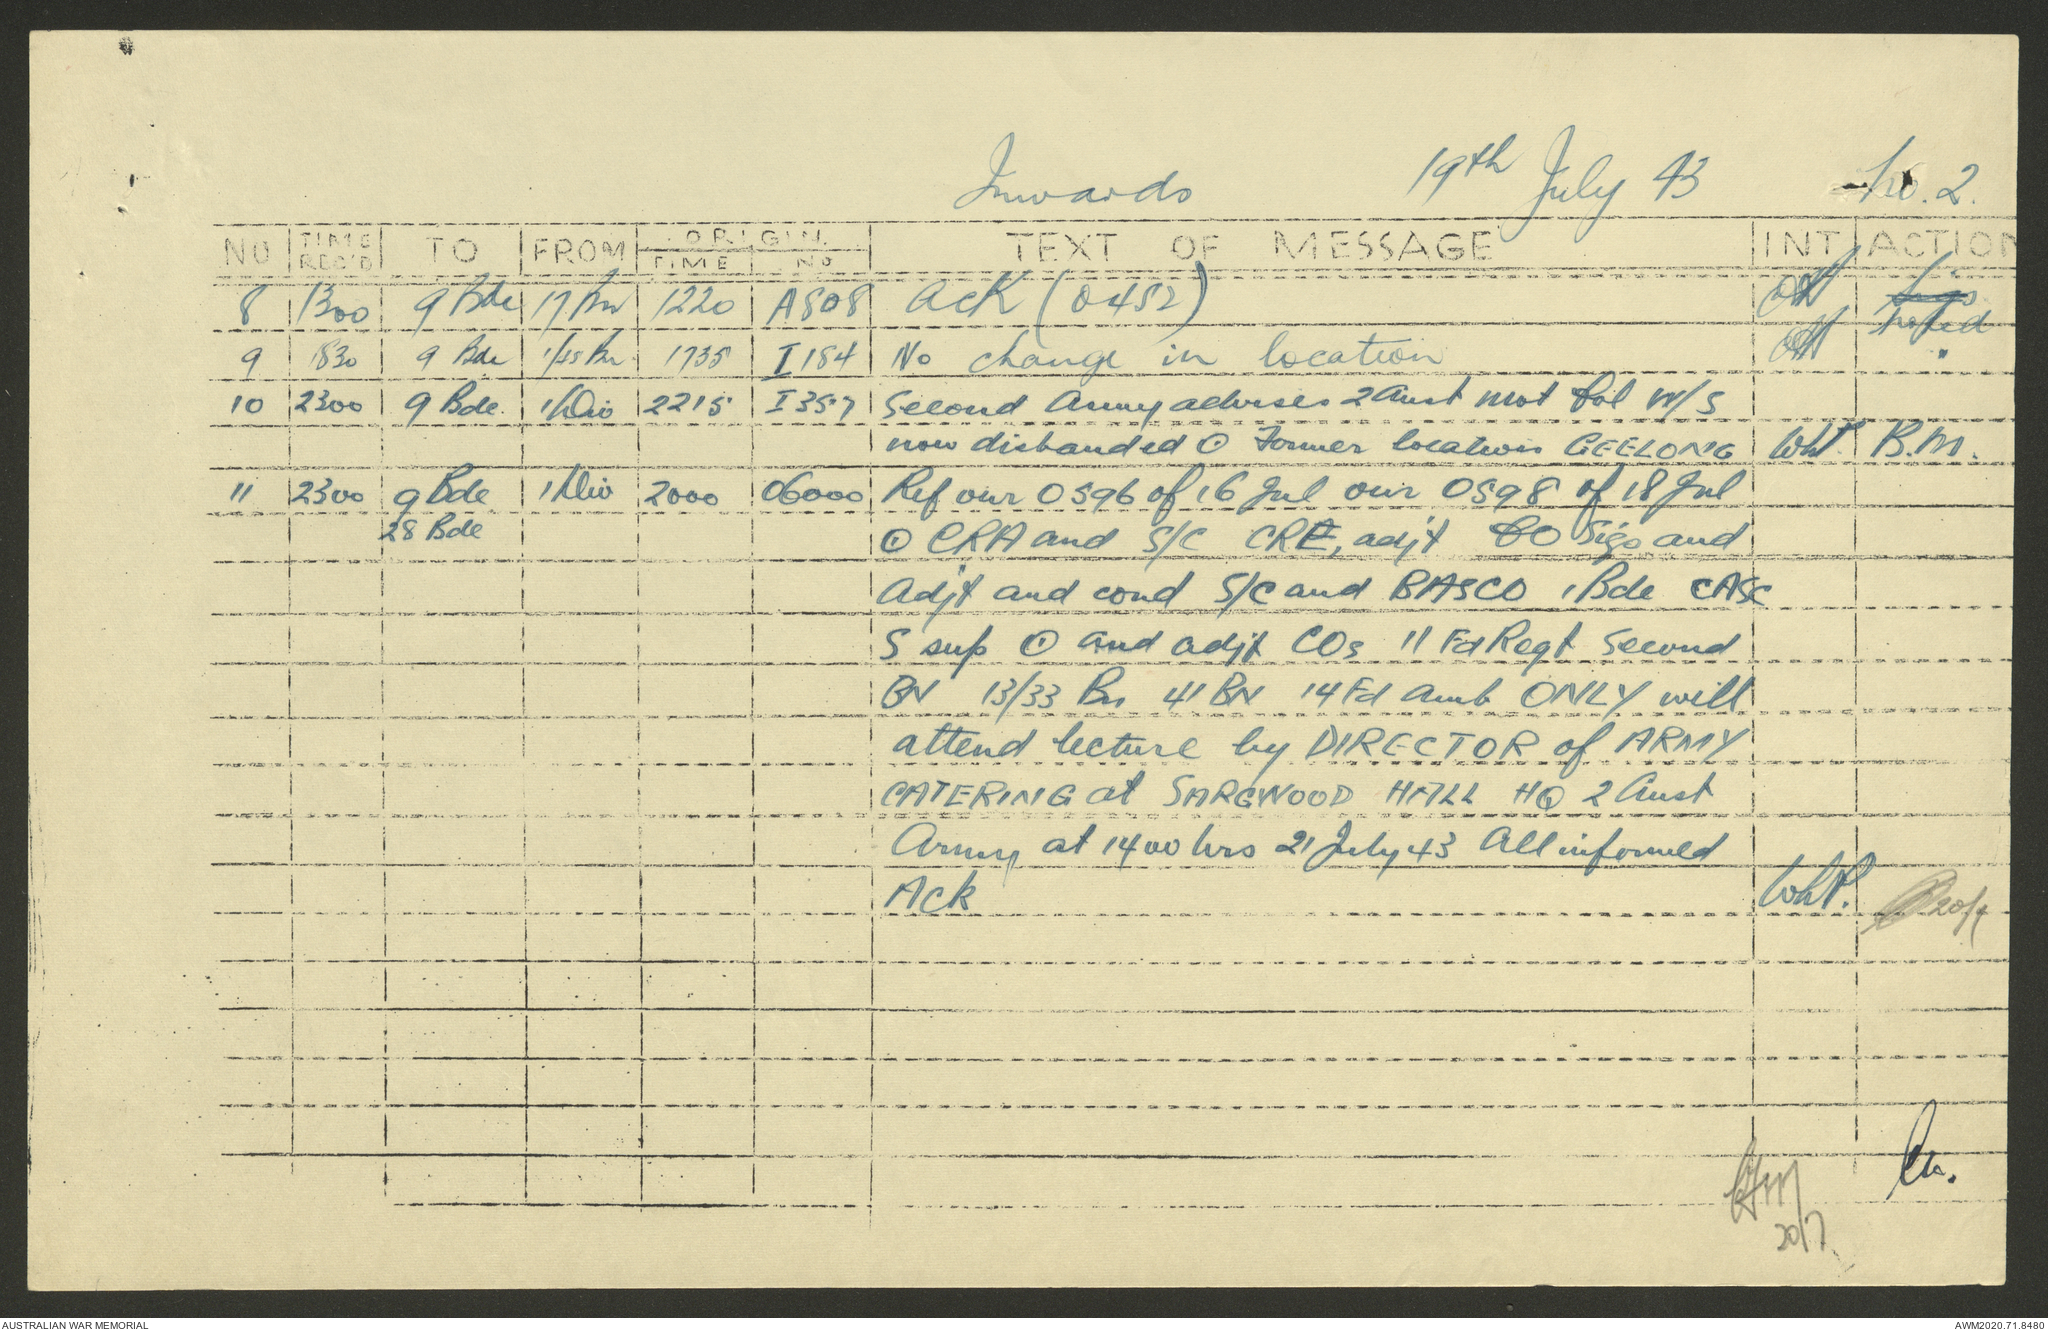 Inwards 19th July 43 No. 2.
NO TIME REC'D TO FROM ORIGIN TIME NO TEXT OF MESSAGE INT ACTION
8 1300 9 Bde 17 Bn 1220 A808 Ack (0452) Sigs
Noted
9 1830 9 Bde 1/45 Bn 1735 I184 No change in location
10 2300 9 Bde. 1 Div 2215 I357 Second Army advises 2 Aust Mot W/S
now disbanded ⊙ Former location GEELONG WhP. B.M.
11 2300 9 Bde 1 Div 2000 06000 Ref our 0596 of 16 Jul our 0598 of 18 Jul
28 Bde ⊙ CRA and S/C CRE, adjt CO Sigs and
Adjt and cond S/C and BASCO 1 Bde CASC
S sup ⊙ and adjt COs 11 Fd Regt Second
BN 13/33 Bn 41 BN 14 Fd Amb ONLY will
attend lecture by DIRECTOR of ARMY
CATERING at SARGWOOD HALL HQ 2 Aust
Army at 1400 hrs 21 July 43 All informed
Ack WhP. 20/7
20/7
AUSTRALIAN WAR MEMORIAL AWM2020.71.8480